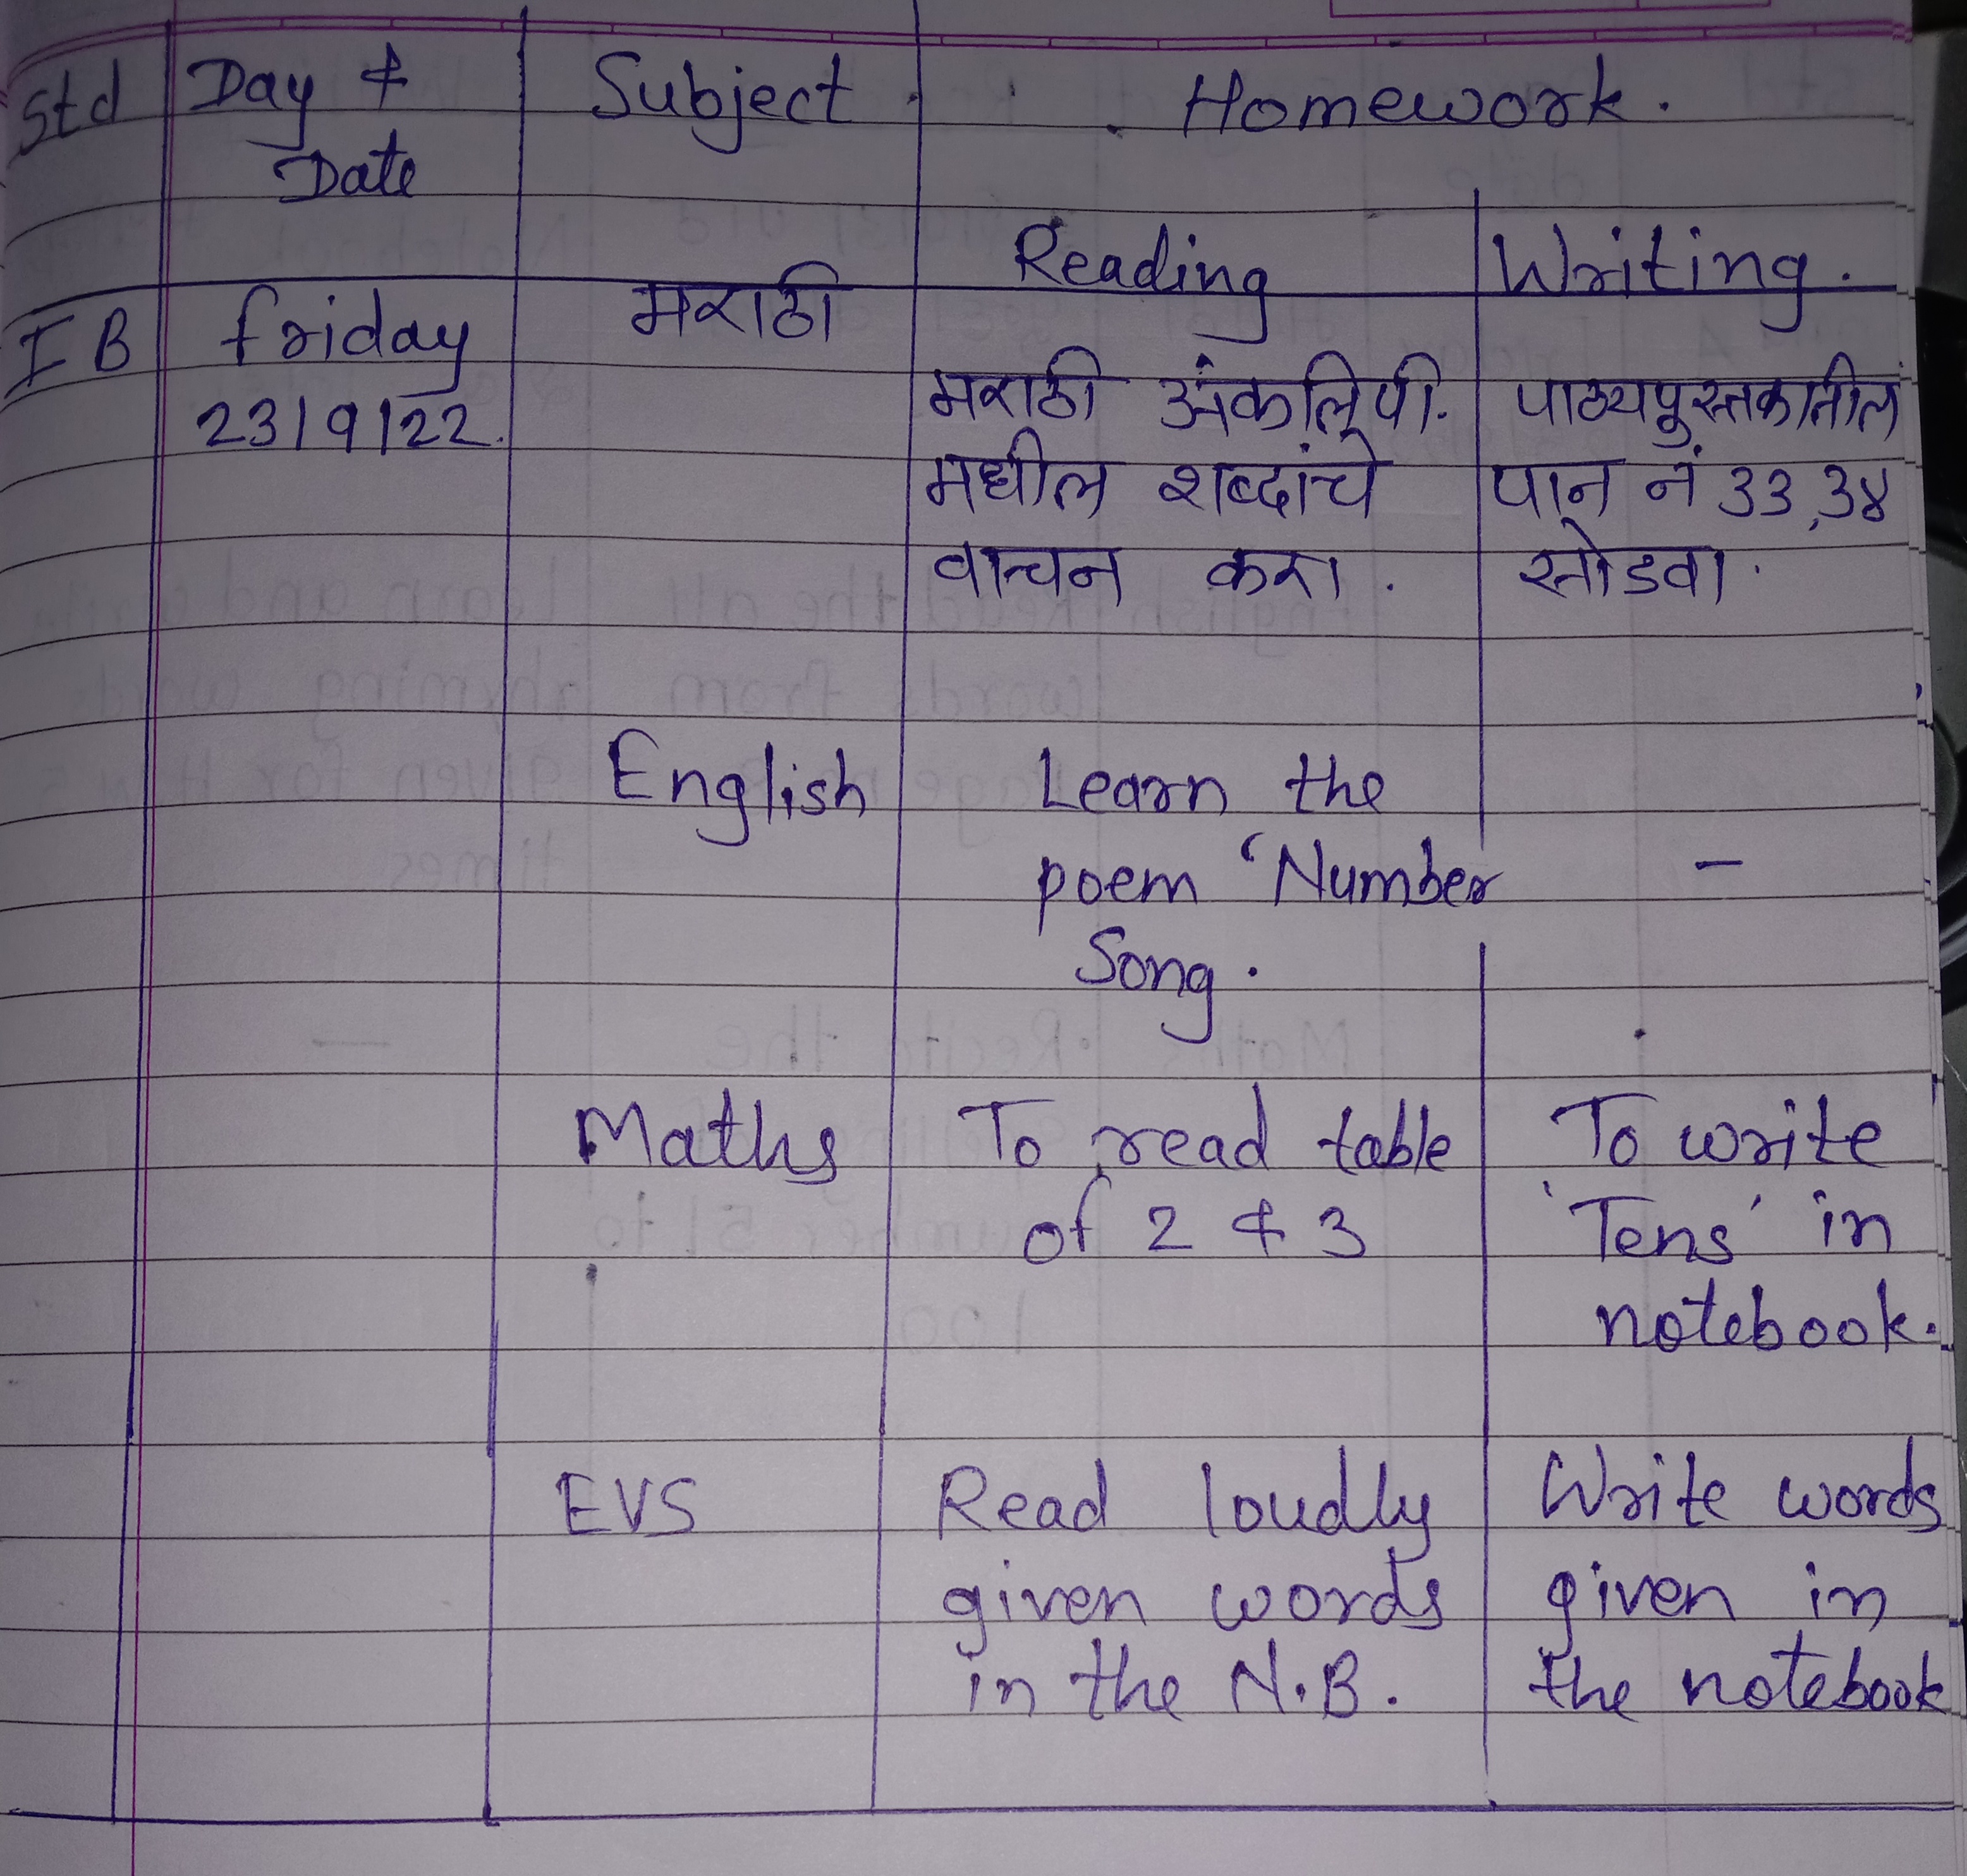 Std Day & Subject Homework.
Date
Reading Writing.
I B friday मराठी
23/9/22.
मराठी अंकलिपी. पाठ्यपुस्तकातील
मधील शब्दांचे पान नं 33,३४
वाचन करा. सोडवा.
English Learn the
poem 'Number –
Song.
Maths To read table To write
of 2 & 3 'Tens' in
notebook.
EVS Read loudly Write words
given words given in
in the N.B. the notebook